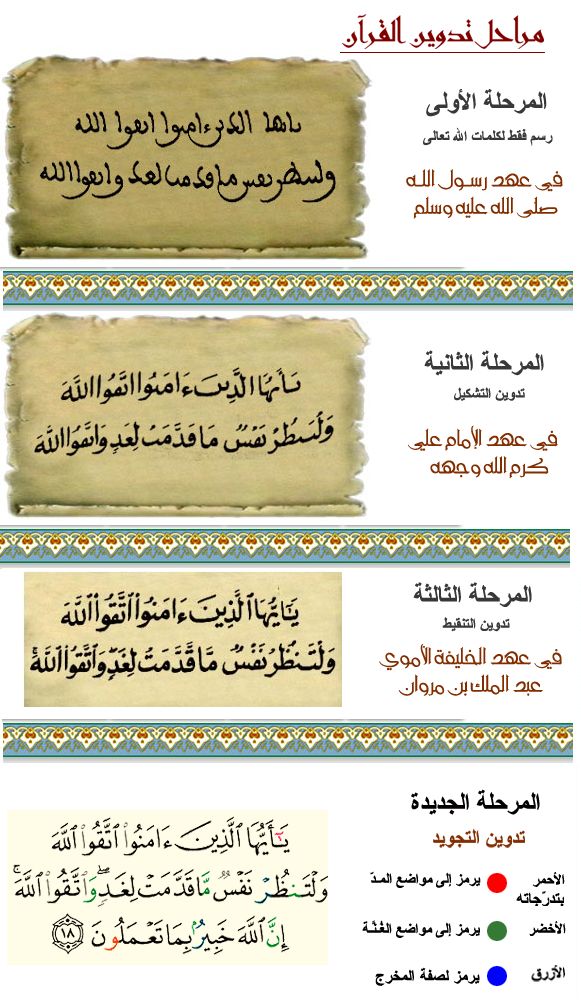 مراحل تدوين القرآن
المرحلة الأولى
رسم فقط لكلمات الله تعالى
في عهد رسول الله
صلى الله عليه وسلم
ىاىها الدىں ءامىوا اىٯوا الله
ولىىطر ىڡس ما ٯدمى لعد واىٯوا الله
المرحلة الثانية
تدوين التشكيل
في عهد الإمام علي
كرم الله وجهه
يَٰأَيُّهَا الَّذِينَ ءَامَنُوا اتَّقُوا اللَّهَ
وَلْتَنظُرْ نَفْسٌ مَا قَدَّمَتْ لِغَدٍ وَاتَّقُوا اللَّهَ
المرحلة الثالثة
تدوين التنقيط
في عهد الخليفة الأموي
عبد الملك بن مروان
يَٰٓأَيُّهَا ٱلَّذِينَ ءَامَنُوا۟ ٱتَّقُوا۟ ٱللَّهَ
وَلْتَنظُرْ نَفْسٌ مَّا قَدَّمَتْ لِغَدٍ وَٱتَّقُوا۟ ٱللَّهَ
المرحلة الجديدة
تدوين التجويد
الأحمر يرمز إلى مواضع المدّ
بتدرّجاته
الأخضر يرمز إلى مواضع الغُنّة
الأزرق يرمز لصفة المخرج
يَٰٓأَيُّهَا ٱلَّذِينَ ءَامَنُوا۟ ٱتَّقُوا۟ ٱللَّهَ
وَلْتَنظُرْ نَفْسٌ مَّا قَدَّمَتْ لِغَدٍ وَٱتَّقُوا۟ ٱللَّهَ ۚ
إِنَّ ٱللَّهَ خَبِيرٌۢ بِمَا تَعْمَلُونَ ١٨